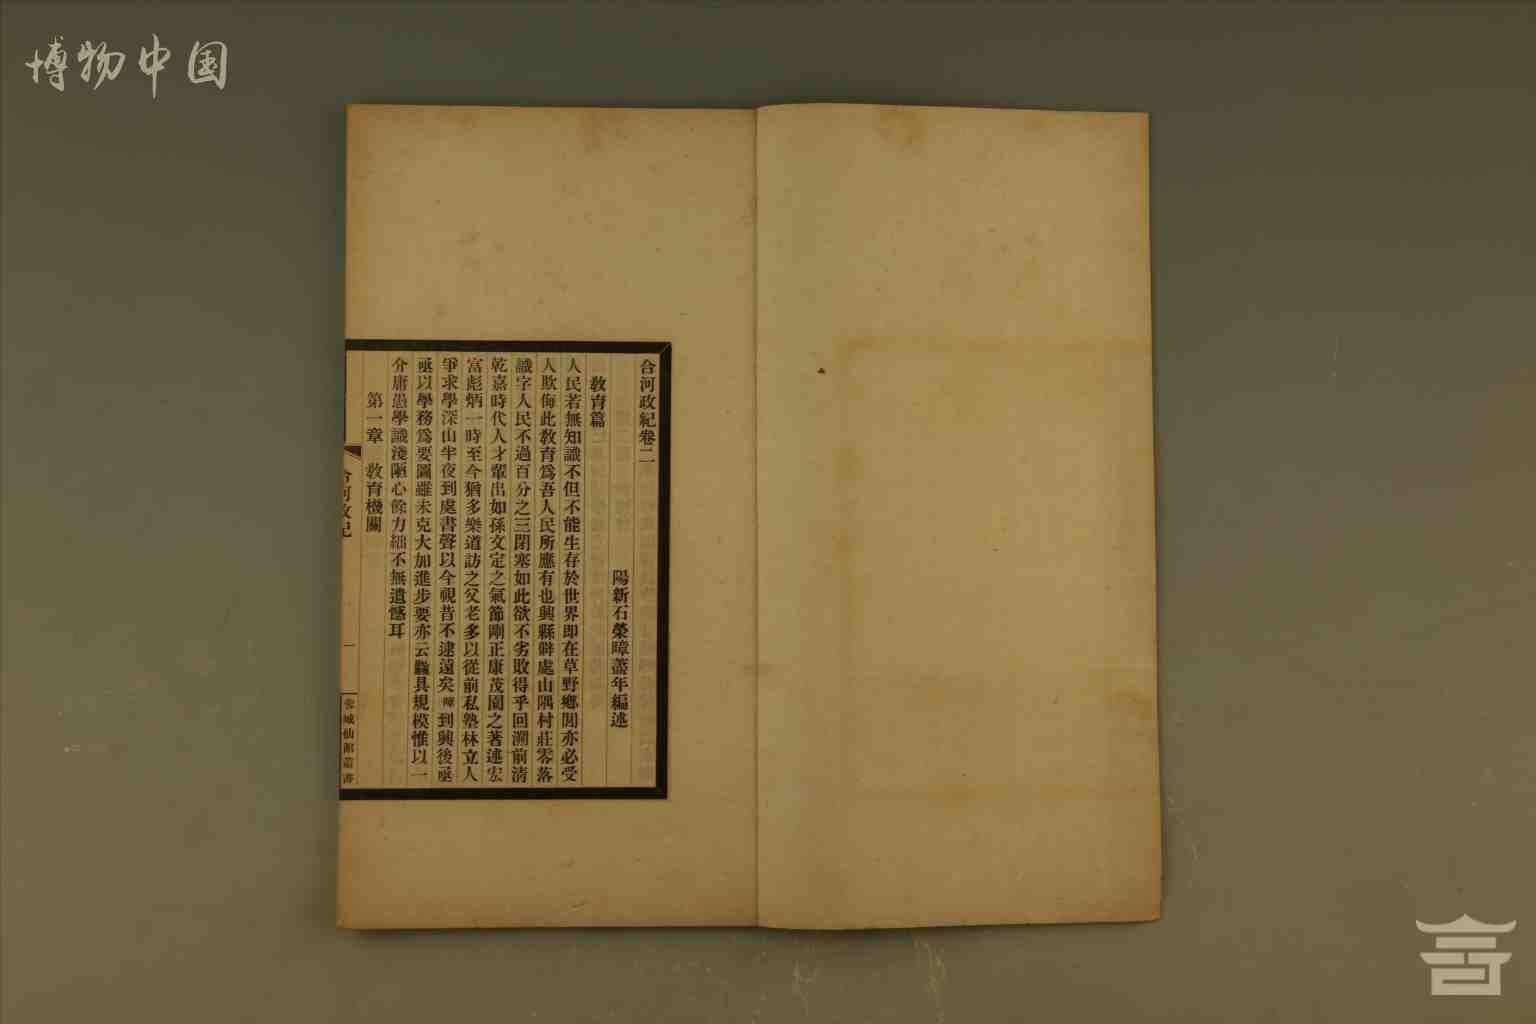 博物中国
合河政紀卷二
陽新石榮暲藎年編述
教育篇
人民若無知識不但不能生存於世界即在草野鄉閭亦必受
人欺侮此教育爲吾人民所應有也興縣僻處山隅村莊零落
識字人民不過百分之三閉塞如此欲不劣敗得乎回溯前清
乾嘉時代人才輩出如孫文定之氣節剛正康茂園之著述宏
富彪炳一時至今猶多樂道訪之父老多以從前私塾林立人
爭求學深山半夜到處書聲以今視昔不逮遠矣暲到興後亟
亟以學務爲要圖雖未克大加進步要亦云麤具規模惟以一
介庸愚學識淺陋心餘力絀不無遺憾耳
第一章 教育機關
合河政紀
一
蓉城仙館叢書